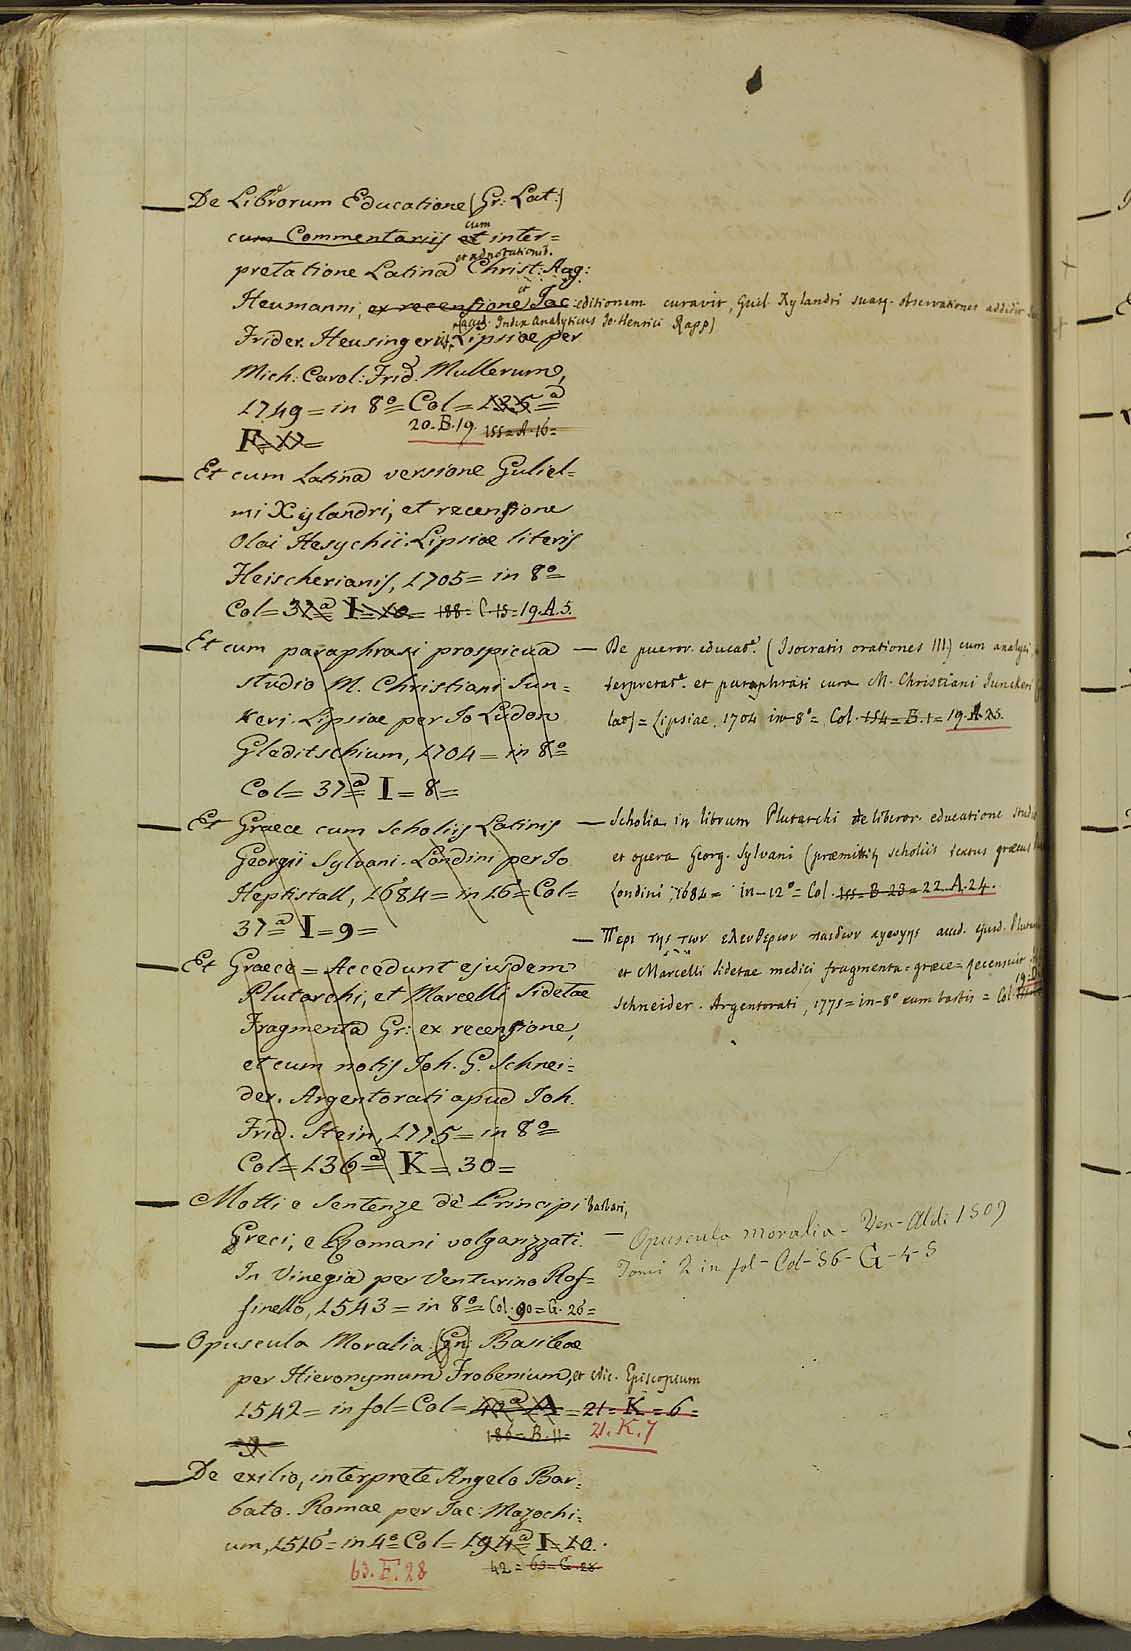 — De Librorum Educatione (Gr: Lat:)
cum Commentariis et cum inter=
et adnotationib.
pretatione Latina Christ: Aug:
Heumanni, ex recensione et Jac: editionem curavit, Guil. Xylandri suasq. observationes addidit
(acced. Index Analyticus Jo. Henrici Rapp)
Frider. Heusingerii, Lipsiae per
Mich: Carol: Frid. Mullerum,
1749 = in 8º = Col = 135ª =
20. B. 19. 155 = A. 16 =
F = 12 =
— Et cum Latina versione Guliel=
mi Xylandri, et recensione
Olai Hesychii. Lipsiae literis
Fleischerianis, 1705 = in 8º =
Col = 37ª I = 10 = 188 = C. 15 = 19. A. 5.
— Et cum paraphrasi prospicua
studio M. Christiani Jun=
keri. Lipsiae per Jo Ludov
Gleditschium, 1704 = in 8º =
Col = 37ª I = 8 =
— Et Graece cum scholiis Latinis
Georgii Sylvani. Londini per Jo.
Heptistall, 1684 = in 16 = Col =
37ª I = 9 =
— Et Graece = Accedunt ejusdem
Plutarchi, et Marcelli Sidetae
Fragmenta Gr: ex recensione,
et cum notis Joh. G. Schnei=
der. Argentorati apud Joh.
Frid. Stein, 1775 = in 8º =
Col = 136ª K = 30 =
— Motti e Sentenze de Principi barbari,
Greci, e Romani volgarizzati.
In Vinegia per Venturino Rof=
finello, 1543 = in 8º = Col. 90 = G. 26 =
— Opuscula Moralia (Gr:) Basileae
per Hieronymum Frobenium, et Nic. Episcopium
1542 = in fol = Col = 42ª A = 21 = K = 6 =
186 = B. 11 = 21. K. 7
9
— De exilio, interprete Angelo Bar=
bato. Romae per Jac: Mazochi=
um, 1516 = in 4º = Col = 194ª I = 10.
63. F. 28 42 = 63 = G. 28
— De pueror. educatᵉ. (Isocratis orationes III) cum analysi,
terpretatᵉ. et paraphrasi cura M. Christiani Junckeri
lat) = Lipsiae, 1704 in-8º = Col. 154 = B. 1 = 19. A 23.
— Scholia in librum Plutarchi de liberor. educatione studio
et opera Georg. Sylvani (praemittitᵣ scholiis textus graecus
Londini, 1684 = in-12º = Col. 155 = B 23 = 22. A. 24.
— Περι της των ελευθερων παιδων αγωγης accd. ejusd.
et Marcelli Sidetae medici fragmenta = graece = recensuit
Schneider. Argentorati, 1775 = in-8º cum = Col.
— Opuscula moralia - Ven - Aldi 1509
Tomi 2 in fol - Col - 56 - G - 4 - 5